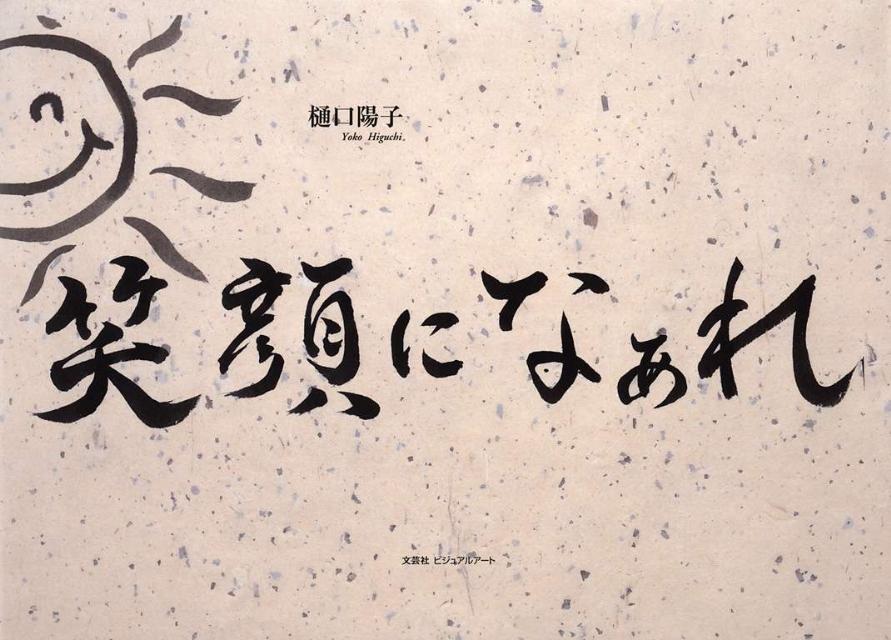 樋口陽子
Yoko Higuchi
笑顔になぁれ
文芸社 ビジュアルアート